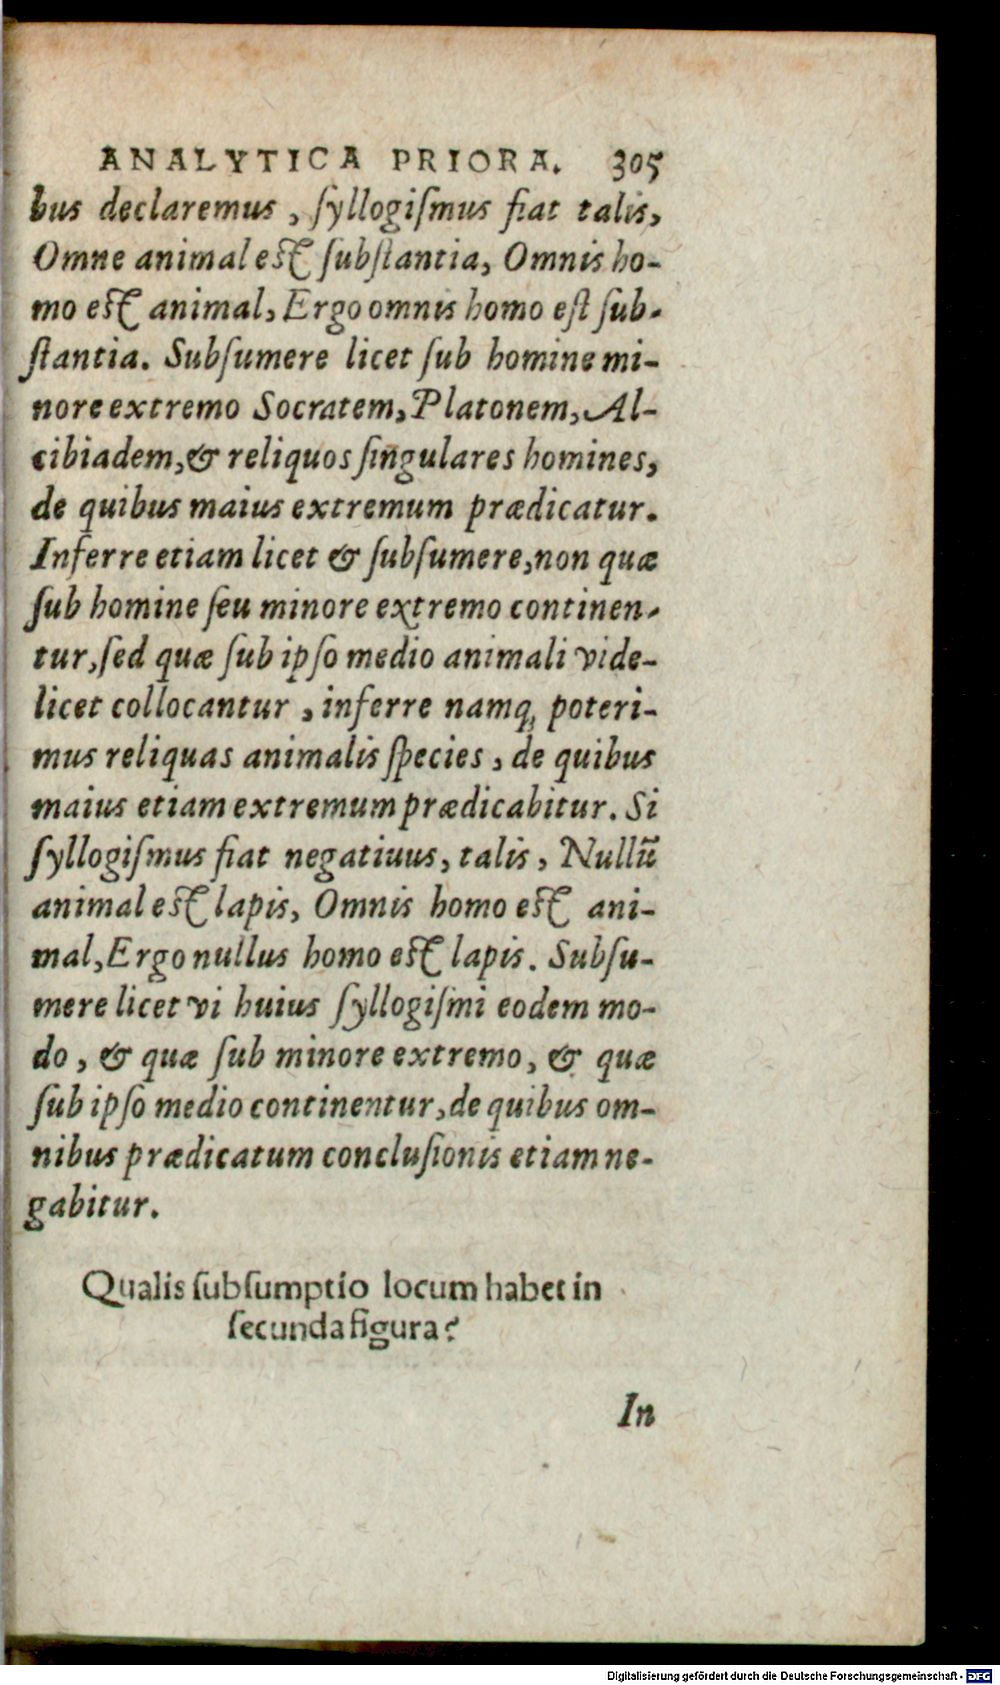 ANALYTICA PRIORA. 305
bus declaremus, ſyllogiſmus fiat talis,
Omne animal eſt ſubſtantia, Omnis ho-
mo eſt animal, Ergo omnis homo eſt ſub-
ſtantia. Subſumere licet ſub homine mi-
nore extremo Socratem, Platonem, Al-
cibiadem, & reliquos ſingulares homines,
de quibus maius extremum prædicatur.
Inferre etiam licet & ſubſumere, non quæ
ſub homine ſeu minore extremo continen-
tur, ſed quæ ſub ipſo medio animali vide-
licet collocantur, inferre namq; poteri-
mus reliquas animalis ſpecies, de quibus
maius etiam extremum prædicabitur. Si
ſyllogiſmus fiat negatiuus, talis, Nullũ
animal eſt lapis, Omnis homo eſt ani-
mal, Ergo nullus homo eſt lapis. Subſu-
mere licet vi huius ſyllogiſmi eodem mo-
do, & quæ ſub minore extremo, & quæ
ſub ipſo medio continentur, de quibus om-
nibus prædicatum concluſionis etiam ne-
gabitur.
Qualis ſubſumptio locum habet in
ſecunda figura?
In
Digitalisierung gefördert durch die Deutsche Forschungsgemeinschaft - DFG